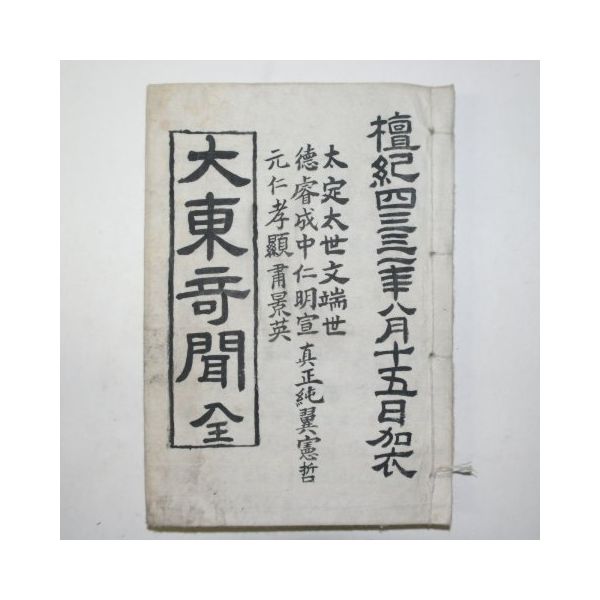 檀紀四三三一年八月十五日加衣
太定太世文端世
德睿成中仁明宣
元仁孝顯肅景英
真正純翼憲哲
大東奇聞 全